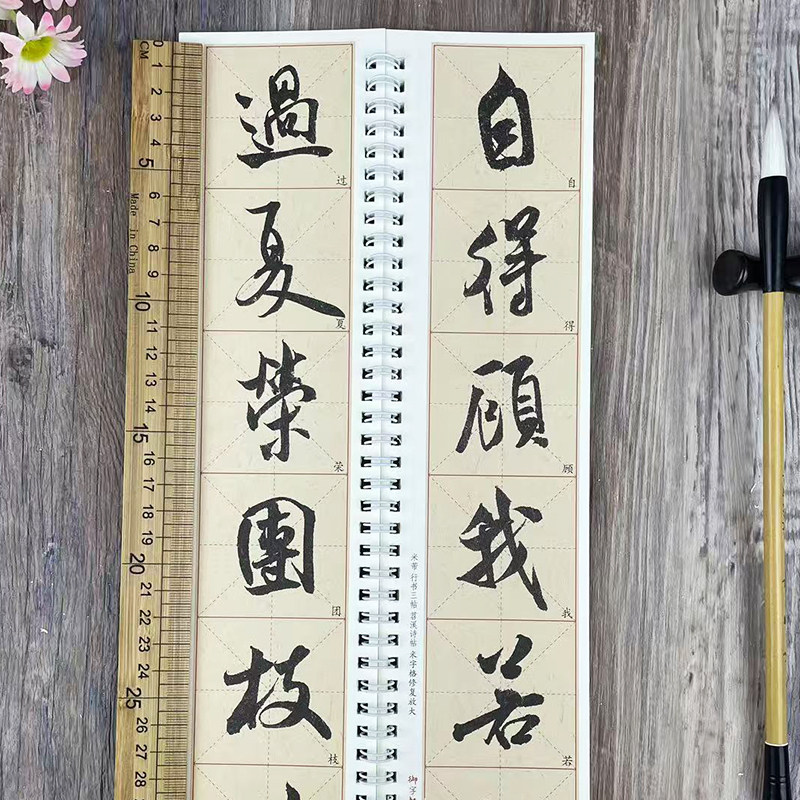 自
自
得
得
顾
顾
我
我
若
若
米芾 行书三帖 苕溪诗帖 米字格修复放大
御字
過
过
夏
夏
榮
荣
團
团
枝
枝
CM
0
1
2
3
4
5
6
7
8
9
10
11
12
13
14
15
16
17
18
19
20
21
22
23
24
25
26
27
28
Made in China